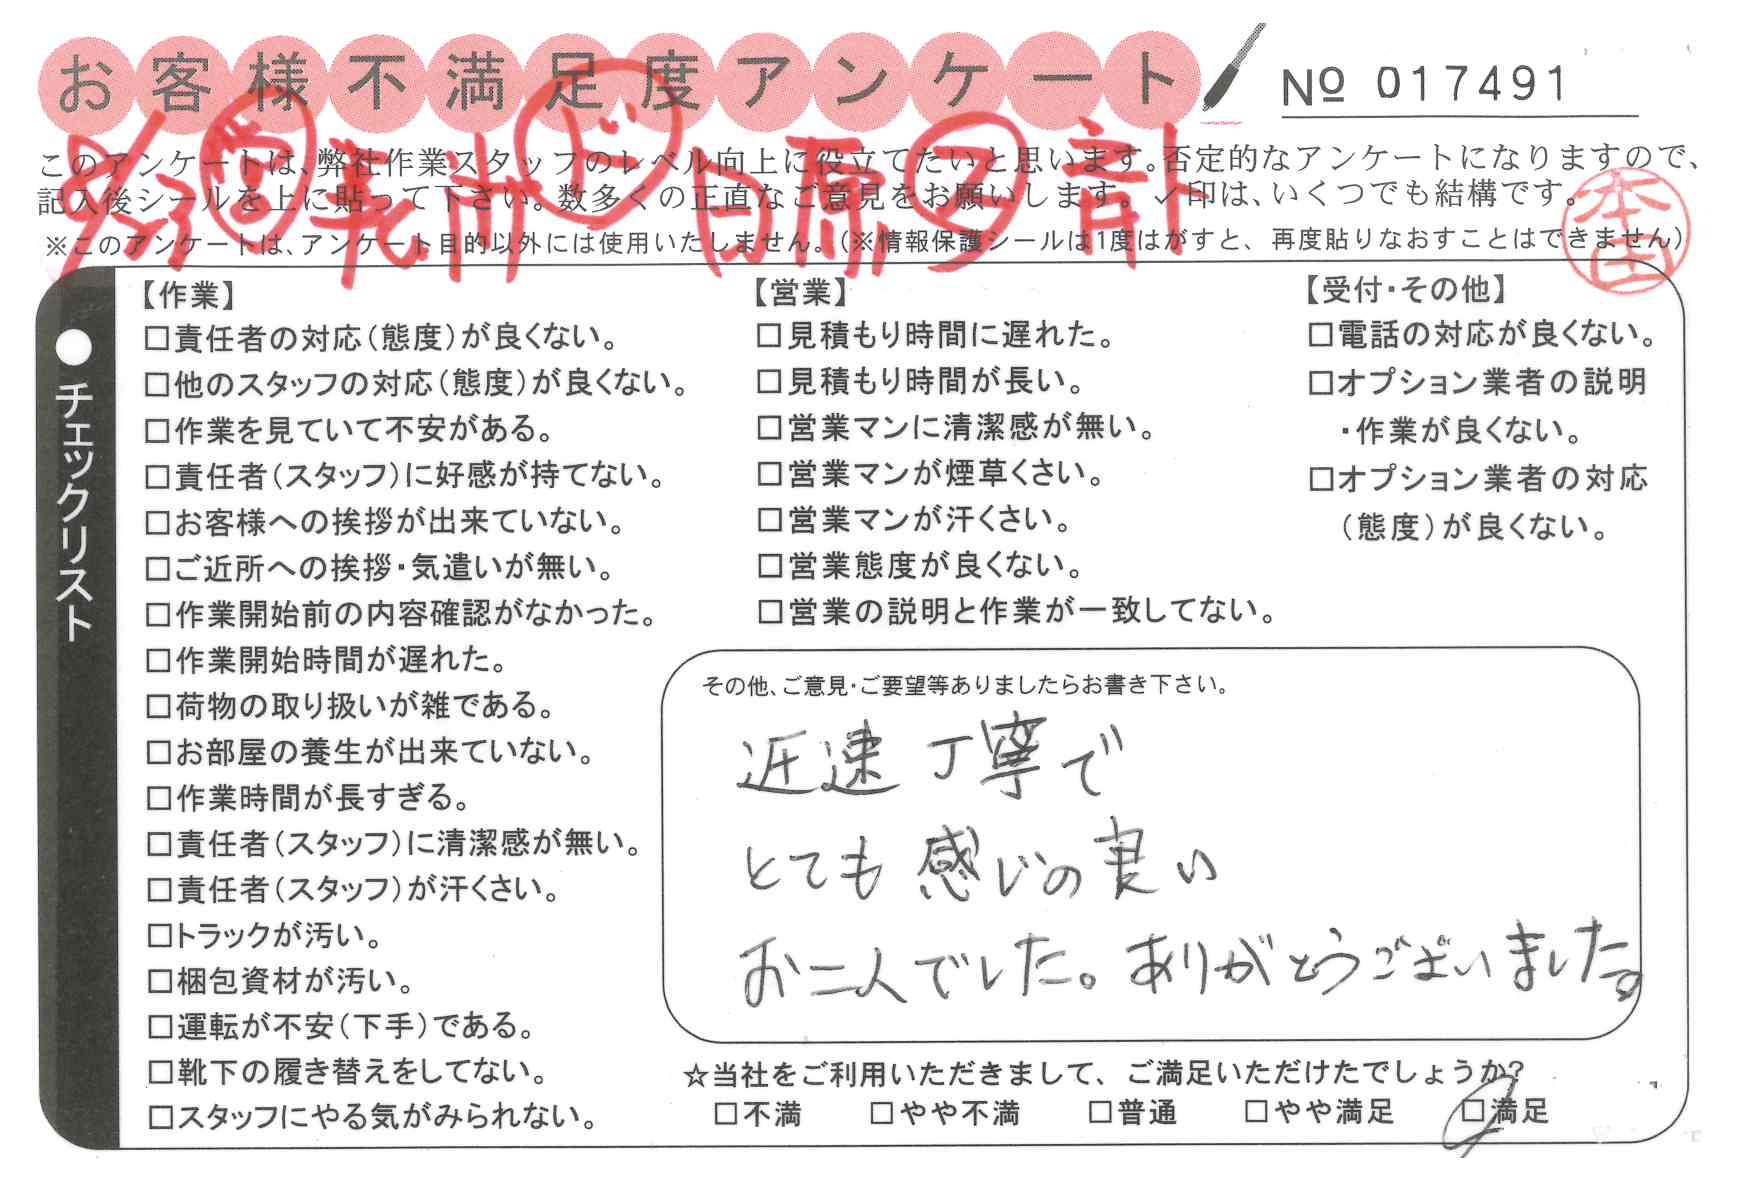 お客様不満足度アンケート
№ 017491
このアンケートは、弊社作業スタッフのレベル向上に役立てたいと思います。否定的なアンケートになりますので、
記入後シールを上に貼って下さい。数多くの正直なご意見をお願いします。✓印は、いくつでも結構です。
※このアンケートは、アンケート目的以外には使用いたしません。(※情報保護シールは1度はがすと、再度貼りなおすことはできません)
本田
●チェックリスト
【作業】
□責任者の対応(態度)が良くない。
□他のスタッフの対応(態度)が良くない。
□作業を見ていて不安がある。
□責任者(スタッフ)に好感が持てない。
□お客様への挨拶が出来ていない。
□ご近所への挨拶・気遣いが無い。
□作業開始前の内容確認がなかった。
□作業開始時間が遅れた。
□荷物の取り扱いが雑である。
□お部屋の養生が出来ていない。
□作業時間が長すぎる。
□責任者(スタッフ)に清潔感が無い。
□責任者(スタッフ)が汗くさい。
□トラックが汚い。
□梱包資材が汚い。
□運転が不安(下手)である。
□靴下の履き替えをしてない。
□スタッフにやる気がみられない。
【営業】
□見積もり時間に遅れた。
□見積もり時間が長い。
□営業マンに清潔感が無い。
□営業マンが煙草くさい。
□営業マンが汗くさい。
□営業態度が良くない。
□営業の説明と作業が一致してない。
【受付・その他】
□電話の対応が良くない。
□オプション業者の説明
・作業が良くない。
□オプション業者の対応
(態度)が良くない。
その他、ご意見・ご要望等ありましたらお書き下さい。
迅速丁寧で
とても感じの良い
お二人でした。ありがとうございました。
☆当社をご利用いただきまして、ご満足いただけたでしょうか?
□不満 □やや不満 □普通 □やや満足 □満足